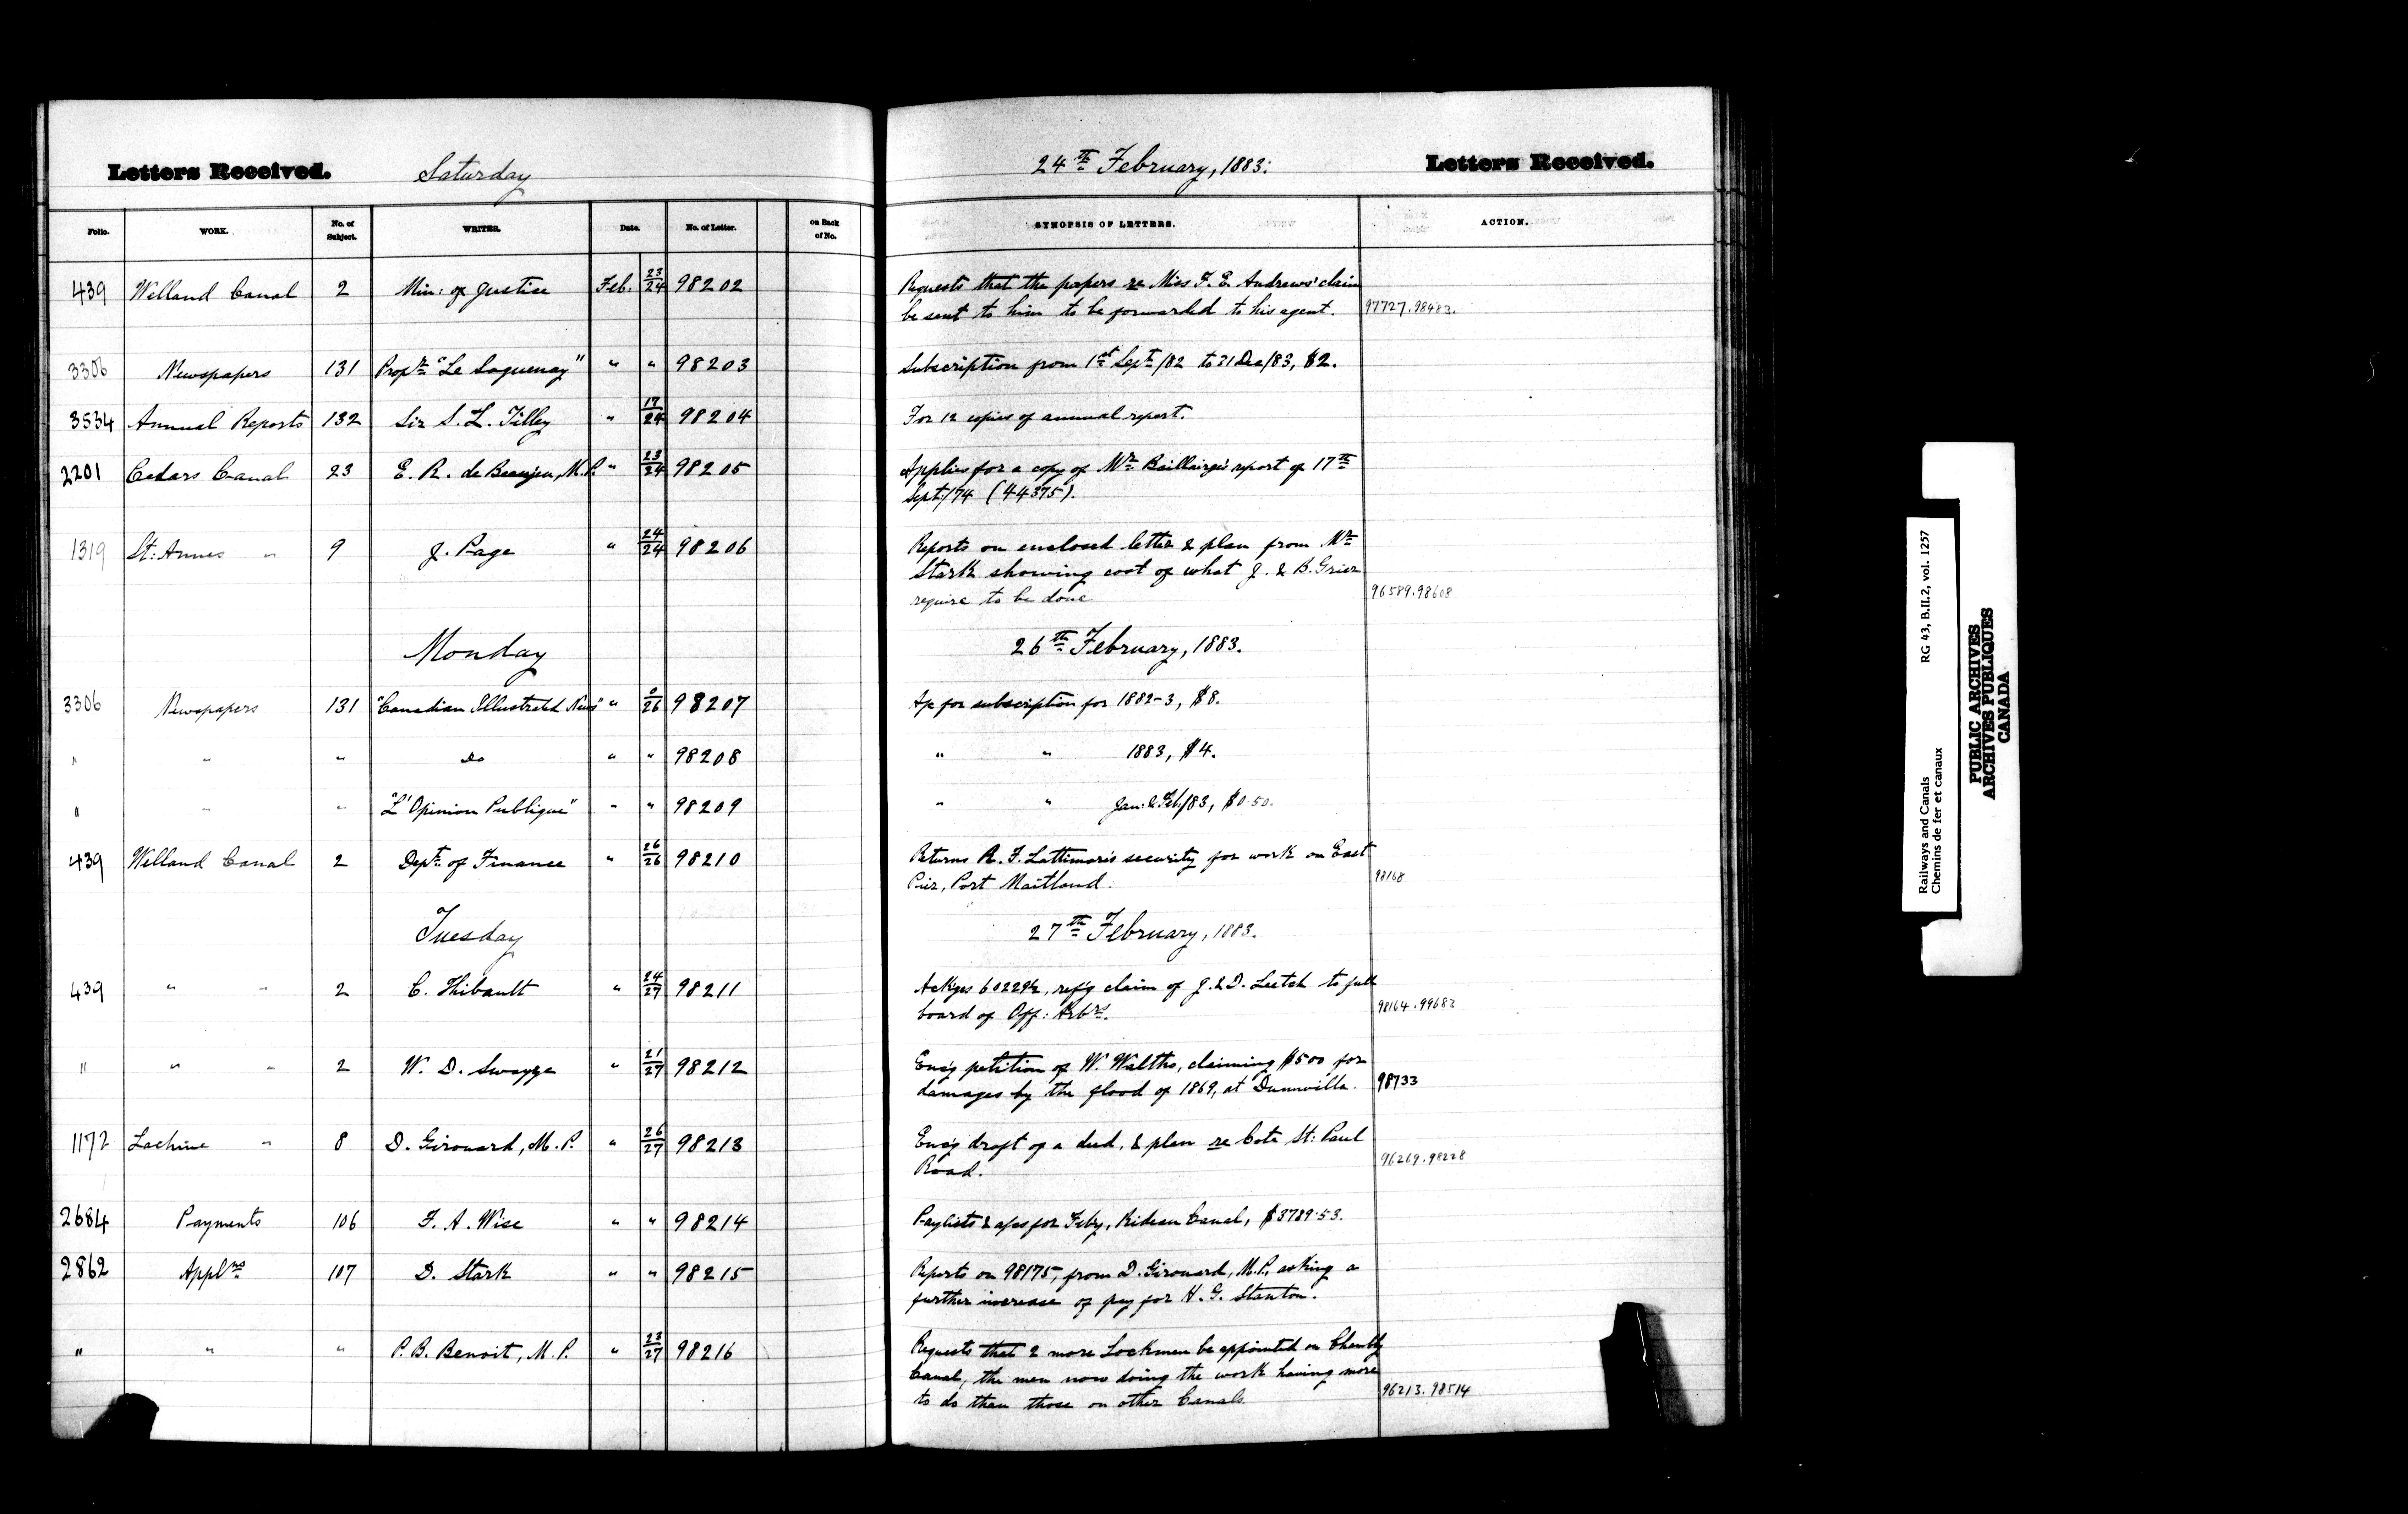 Letters Received. Saturday 24th February, 1883. Letters Received.
Folio. WORK. No. of Subject. WRITER. Date. No. of Letter. on Back of No. SYNOPSIS OF LETTERS. ACTION.
439 Welland Canal 2 Min: of Justice Feb. 23/24 98202 Requests that the papers re Miss F. E. Andrews' claim
be sent to him to be forwarded to his agent. 97727.98483.
3306 Newspapers 131 Propr. "Le Saguenay" " " 98203 Subscription from 1st Sept/82 to 31 Dec/83, $2.
3534 Annual Reports 132 Sir S. L. Tilley " 17/24 98204 For 12 copies of annual report.
2201 Cedars Canal 23 E. R. de Beaujeu, M.P. " 23/24 98205 Applies for a copy of Mr. Baillairgé's report of 17th
Sept:/74 (44375).
1319 St: Annes " 9 J. Page " 24/24 98206 Reports on enclosed letter & plan from Mr.
Stark showing cost of what J. & B. Grier
require to be done 96589.98608
Monday 26th February, 1883.
3306 Newspapers 131 "Canadian Illustrated News" " 0/26 98207 A/c for subscription for 1882-3, $8.
" " " do " " 98208 " " 1883, $4.
" " " "L'Opinion Publique" " " 98209 " " Jan: & Feb/83, $0.50.
439 Welland Canal 2 Dept. of Finance " 26/26 98210 Returns R. F. Lattimore's security for work on East
Pier, Port Maitland. 98168
Tuesday 27th February, 1883.
439 " " 2 C. Thibault " 24/27 98211 Ackges 60229½, refg claim of J. & D. Leetch to full
board of Off: Arbrs. 98164.99683
" " " 2 W. D. Swayze " 21/27 98212 Encg petition of W. Walths, claiming $500 for
damages by the flood of 1869, at Dunnville. 98733
1172 Lachine " 8 D. Girouard, M.P. " 26/27 98213 Encg draft of a deed, & plan re Cote St: Paul
Road. 96269.98228
2684 Payments 106 F. A. Wise " " 98214 Paylists & a/cs for Feby, Rideau Canal, $3789.53.
2862 Applns 107 D. Stark " " 98215 Reports on 98175, from D. Girouard, M.P., asking a
further increase of pay for H. G. Stanton.
" " " P. B. Benoit, M.P. " 23/27 98216 Requests that 2 more Lockmen be appointed on Chambly
Canal, the men now doing the work having more
to do than those on other Canals. 96213.98514
Railways and Canals RG 43, B.II.2, vol. 1257
Chemins de fer et canaux
PUBLIC ARCHIVES
ARCHIVES PUBLIQUES
CANADA